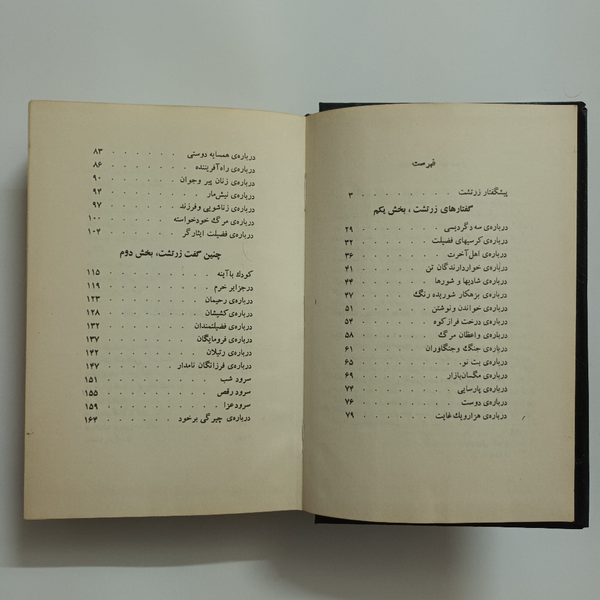 فهرست
پیشگفتار زرتشت . . . . . . . . ۳
گفتارهای زرتشت ، بخش یکم
درباره‌ی سه دگردیسی . . . . . . ۲۹
درباره‌ی کرسیهای فضیلت . . . . . . ۳۲
درباره‌ی اهل آخرت . . . . . . ۳۶
درباره‌ی خواردارندگان تن . . . . . ۴۱
درباره‌ی شادیها و شورها . . . . . ۴۴
درباره‌ی بزهکار شوریده رنگ . . . . ۴۷
درباره‌ی خواندن و نوشتن . . . . . ۵۱
درباره‌ی درخت فراز کوه . . . . . ۵۴
درباره‌ی واعظان مرگ . . . . . ۵۸
درباره‌ی جنگ و جنگاوران . . . . . ۶۱
درباره‌ی بت نو . . . . . . . ۶۵
درباره‌ی مگسان بازار . . . . . . ۶۹
درباره‌ی پارسایی . . . . . . . ۷۴
درباره‌ی دوست . . . . . . . ۷۶
درباره‌ی هزار و یک غایت . . . . . ۷۹
درباره‌ی همسایه دوستی . . . . . . ۸۳
درباره‌ی راه آفریننده . . . . . . ۸۶
درباره‌ی زنان پیر و جوان . . . . . ۹۰
درباره‌ی نیش مار . . . . . . . ۹۴
درباره‌ی زناشویی و فرزند . . . . . ۹۷
درباره‌ی مرگ خودخواسته . . . . . ۱۰۰
درباره‌ی فضیلت ایثارگر . . . . . ۱۰۴
چنین گفت زرتشت، بخش دوم
کودک با آینه . . . . . . . ۱۱۵
در جزایر خرم . . . . . . . ۱۱۹
درباره‌ی رحیمان . . . . . . . ۱۲۳
درباره‌ی کشیشان . . . . . . . ۱۲۸
درباره‌ی فضیلتمندان . . . . . . ۱۳۲
درباره‌ی فرومایگان . . . . . . ۱۳۷
درباره‌ی رتیلان . . . . . . . ۱۴۲
درباره‌ی فرزانگان نامدار . . . . . ۱۴۷
سرود شب . . . . . . . . ۱۵۱
سرود رقص . . . . . . . . ۱۵۵
سرود عزا . . . . . . . . ۱۵۹
درباره‌ی چیرگی بر خود . . . . . . ۱۶۴